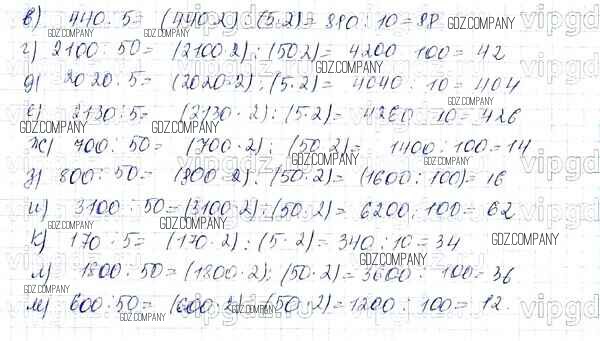 в) 440 : 5 = (440·2) : (5·2) = 880 : 10 = 88
г) 2100 : 50 = (2100·2) : (50·2) = 4200 : 100 = 42
д) 2020 : 5 = (2020·2) : (5·2) = 4040 : 10 = 404
е) 2130 : 5 = (2130·2) : (5·2) = 4260 : 10 = 426
ж) 700 : 50 = (700·2) : (50·2) = 1400 : 100 = 14
з) 800 : 50 = (800·2) : (50·2) = (1600 : 100) = 16
и) 3100 : 50 = (3100·2) : (50·2) = 6200 : 100 = 62
к) 170 : 5 = (170·2) : (5·2) = 340 : 10 = 34
л) 1800 : 50 = (1800·2) : (50·2) = 3600 : 100 = 36
м) 600 : 50 = (600·2) : (50·2) = 1200 : 100 = 12.
GDZ.COMPANY
vipgdz.ru